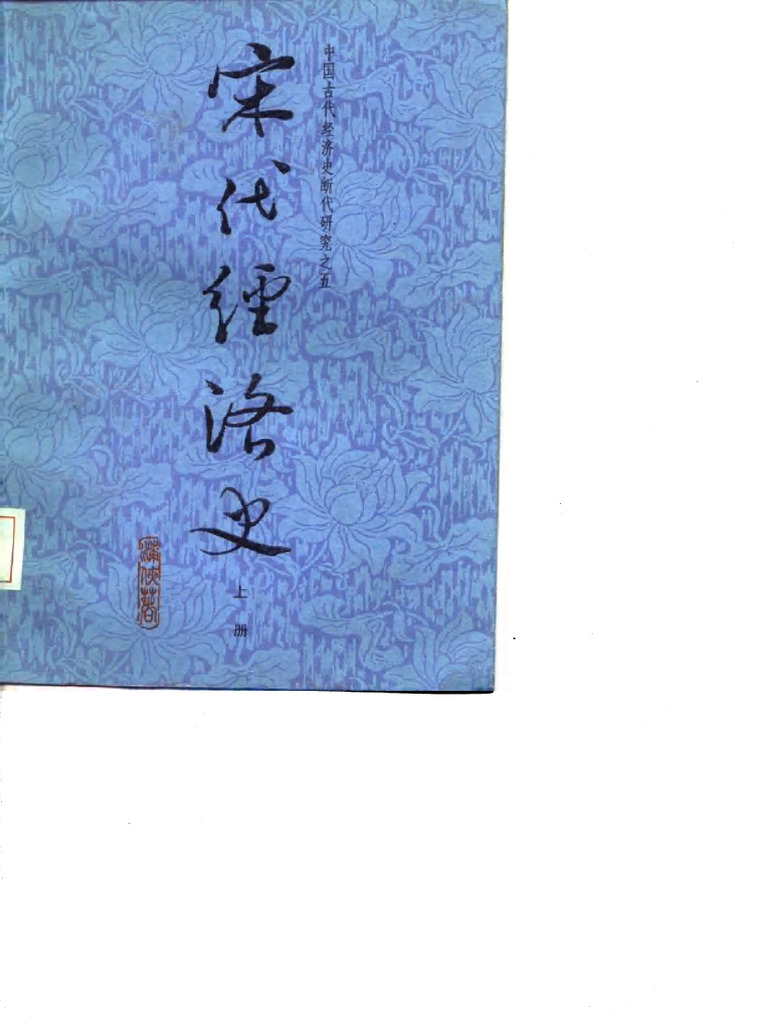 中国古代经济史断代研究之五
宋代經济史
上册
漆俠著